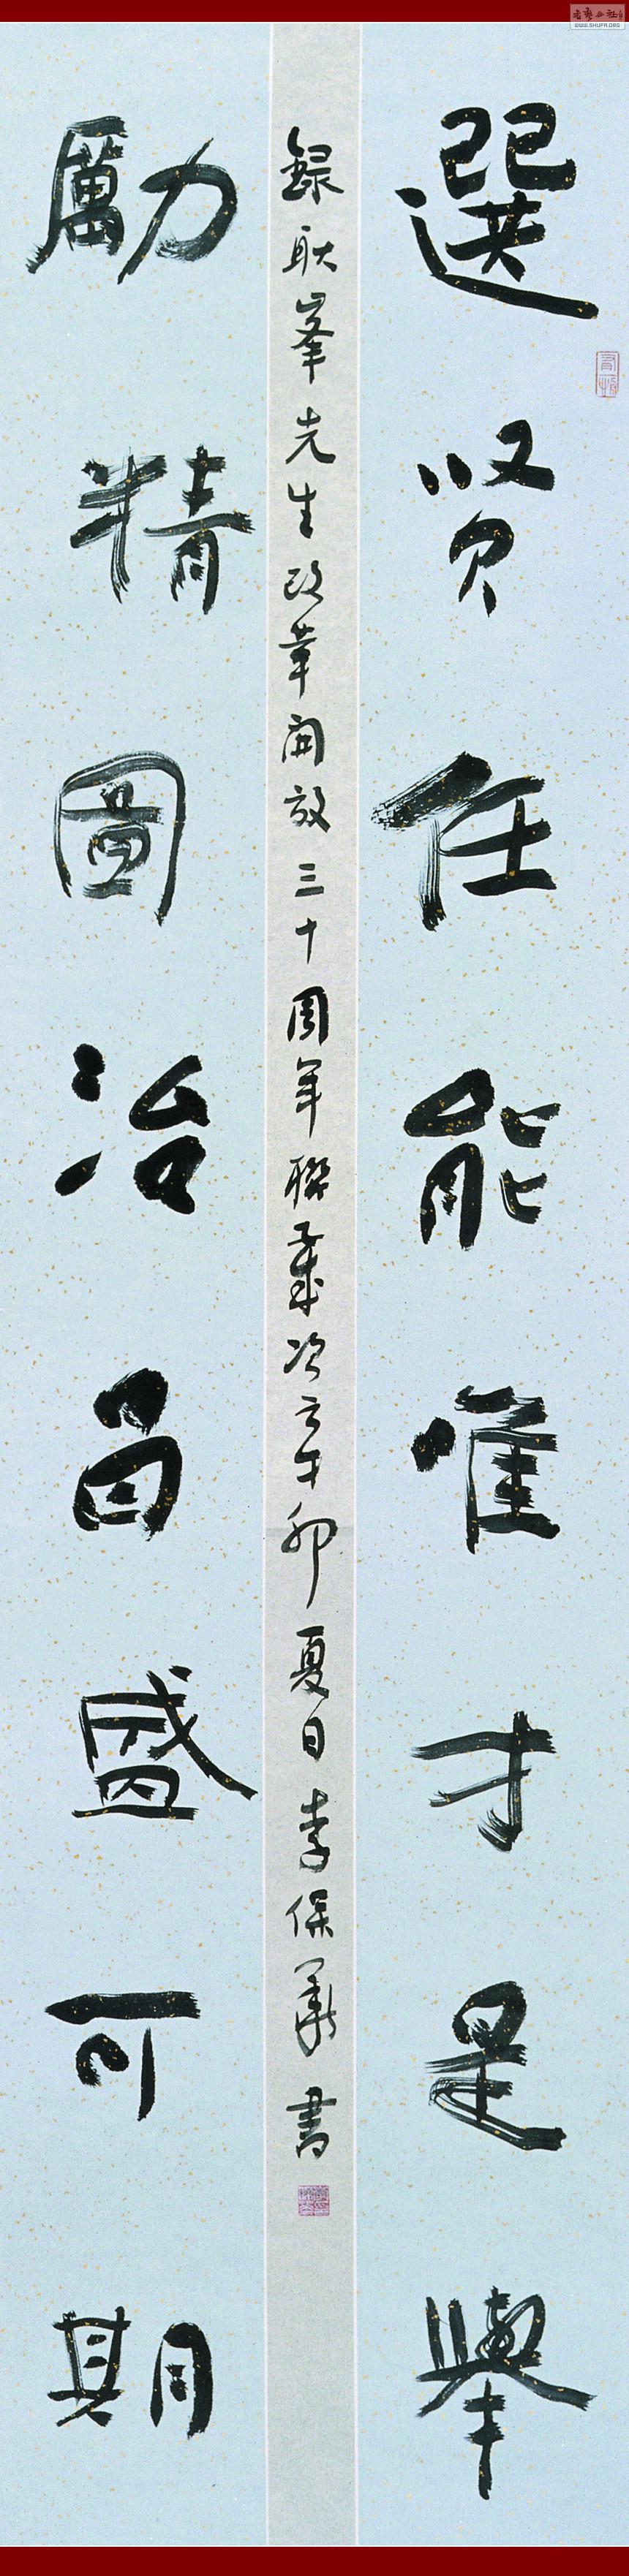 WWW.SHUFA.ORG
選贤任能唯才是舉
勵精圖治昌盛可期
録耿峯先生改革開放三十周年聯歲次辛卯夏日李保書